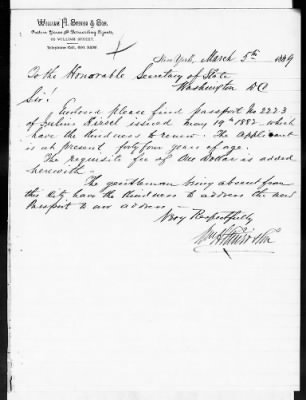 WILLIAM H. & Son.
60 WILLIAM STREET.
New-York, March 5th 1889
To the Honorable Secretary of State
Washington D C
Sir!
Enclosed please find Passport No 2223
of Julius issued May 19th 1887 which
have the kindness to renew. The Applicant
is at present forty four years of age.
The requisite fee of One Dollar is added
herewith.
The gentleman being absent from
this City have the kindness to address the new
Passport to our address.—
Very Respectfully